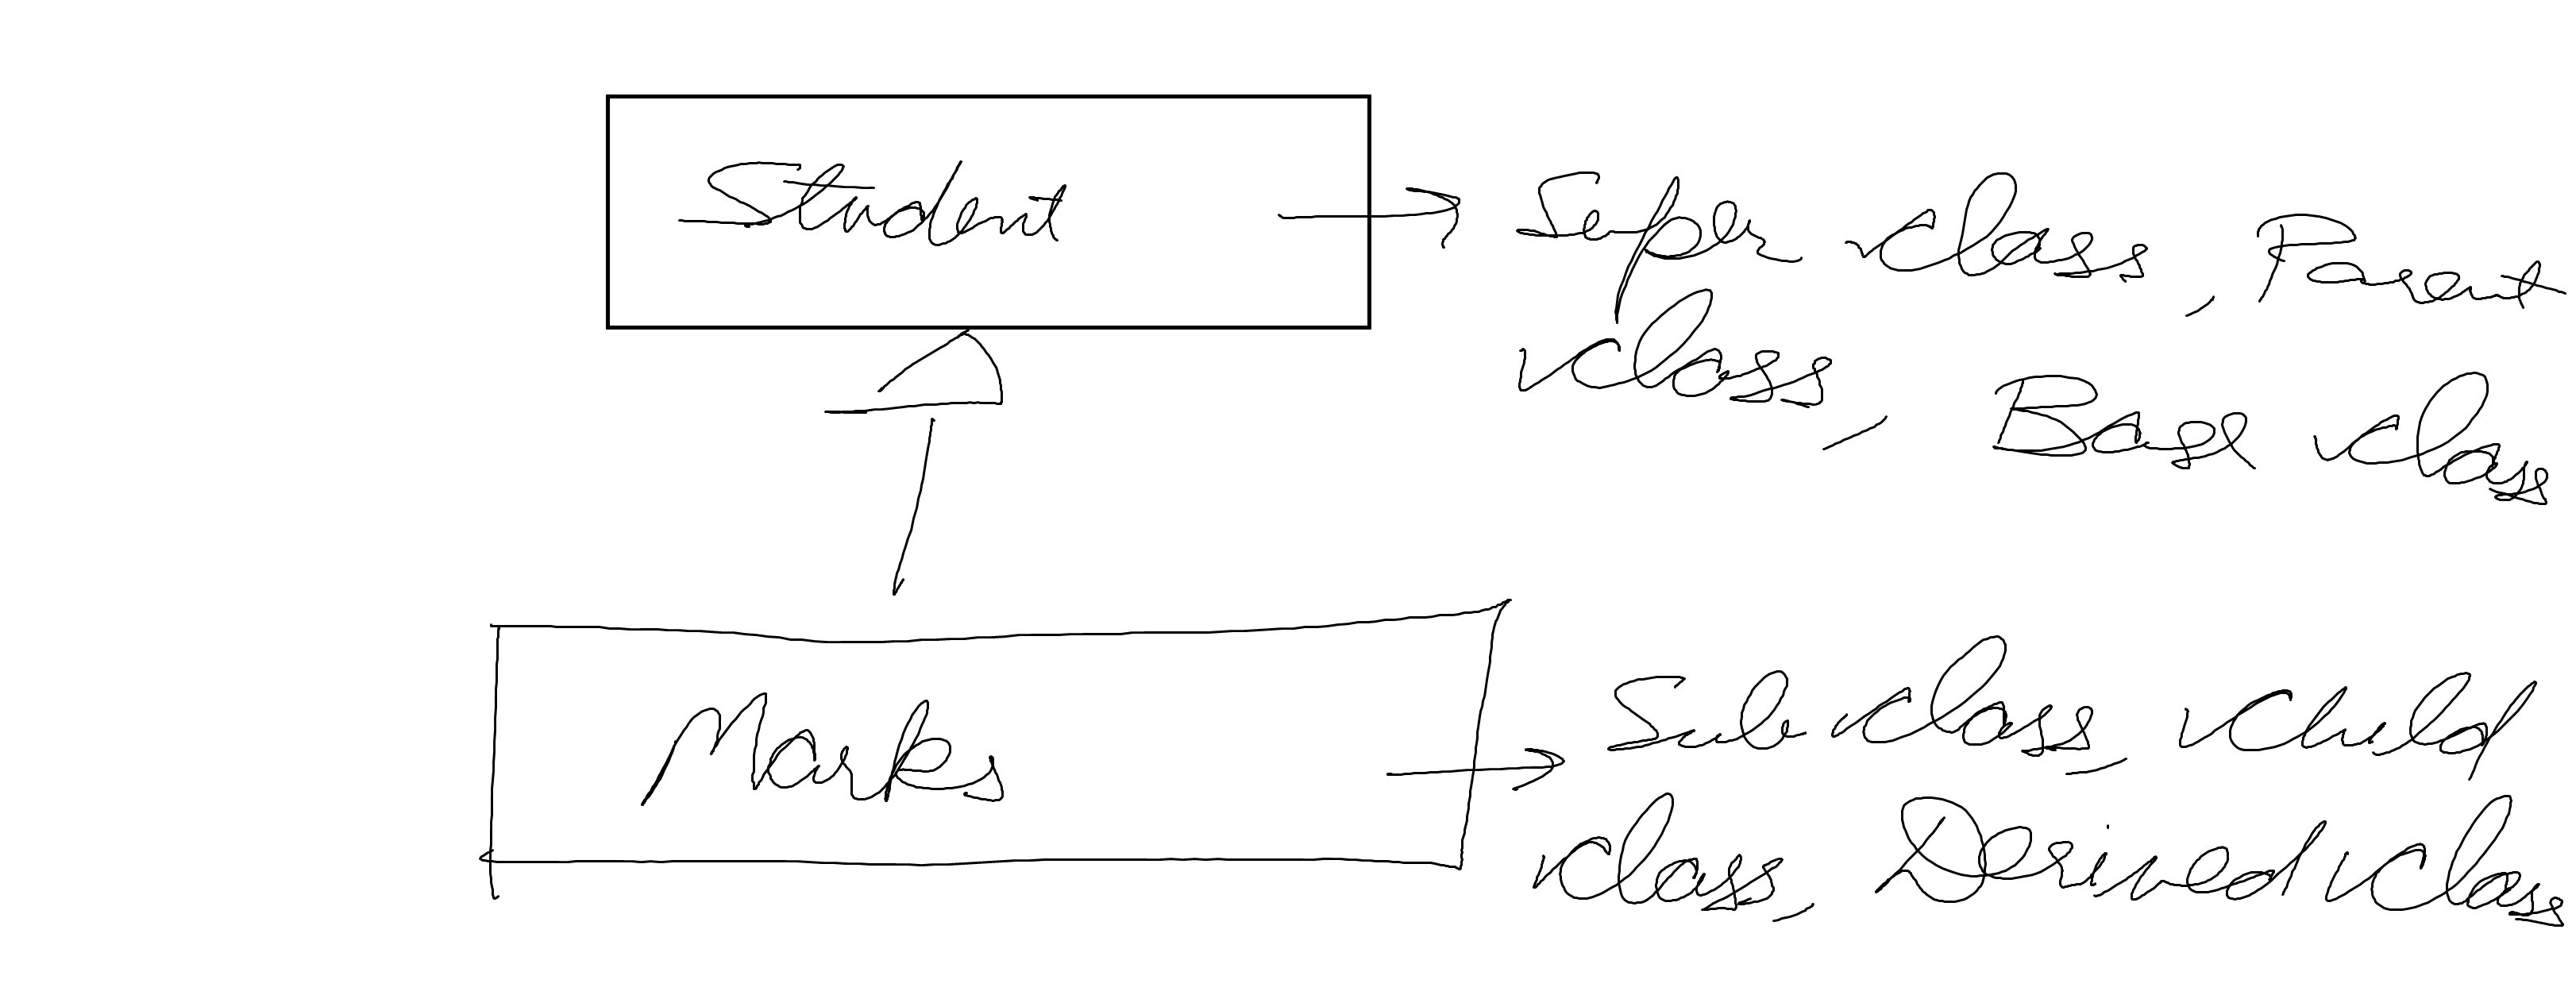 Student
Super class, Parent
class, Base class
Marks
Sub class, child
class, Derived class